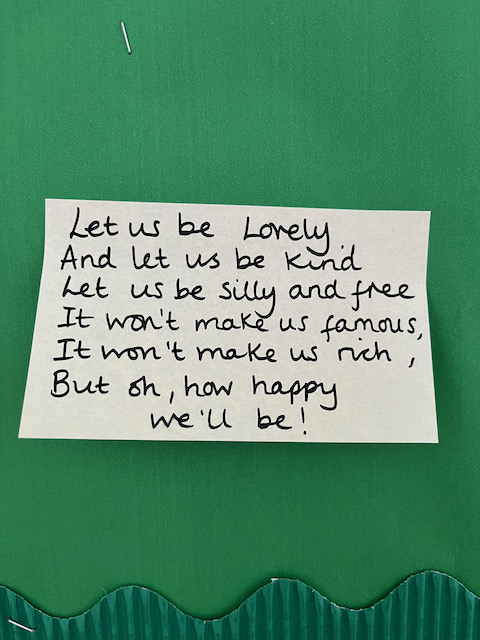 Let us be Lovely
And let us be Kind
Let us be Silly and free
It won't make us famous,
It won't make us rich,
But oh, how happy
we'll be!